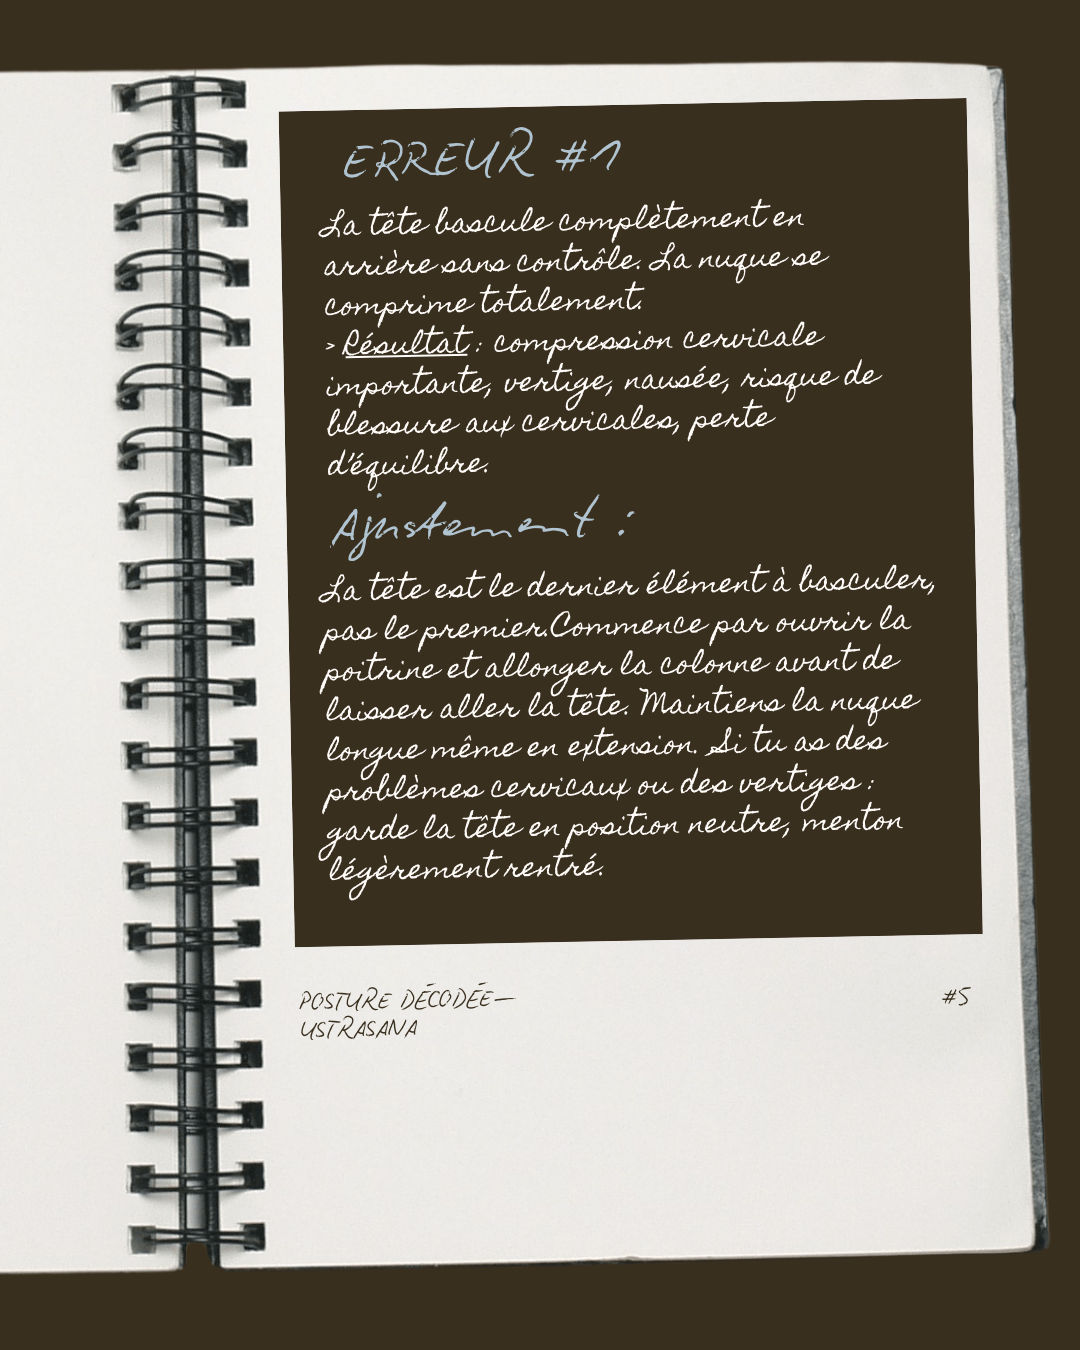 ERREUR #1
La tête bascule complètement en
arrière sans contrôle. La nuque se
comprime totalement.
> Résultat : compression cervicale
importante, vertige, nausée, risque de
blessure aux cervicales, perte
d'équilibre.
Ajustement :
La tête est le dernier élément à basculer,
pas le premier.Commence par ouvrir la
poitrine et allonger la colonne avant de
laisser aller la tête. Maintiens la nuque
longue même en extension. Si tu as des
problèmes cervicaux ou des vertiges :
garde la tête en position neutre, menton
légèrement rentré.
POSTURE DÉCODÉE—
USTRASANA
#5